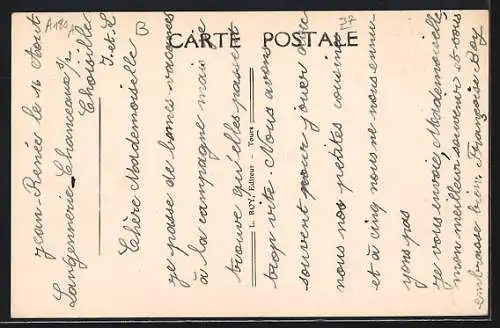 A180
CARTE POSTALE
L. ROY, Editeur - Tours
Jean-Renée le 16 Aout
Langennerie Chanceaux s/r
Choisille
I-et-L
Chère Mademoiselle
je passe de bonnes vacances
à la campagne mais je
trouve qu'elles passent
trop vite. Nous avons
souvent pour jouer avec
nous nos petites cousines
et à cinq nous ne nous ennui
yons pas
je vous envoie, Mademoiselle
mon meilleur souvenir et vous
embrasse bien. Françoise Rey